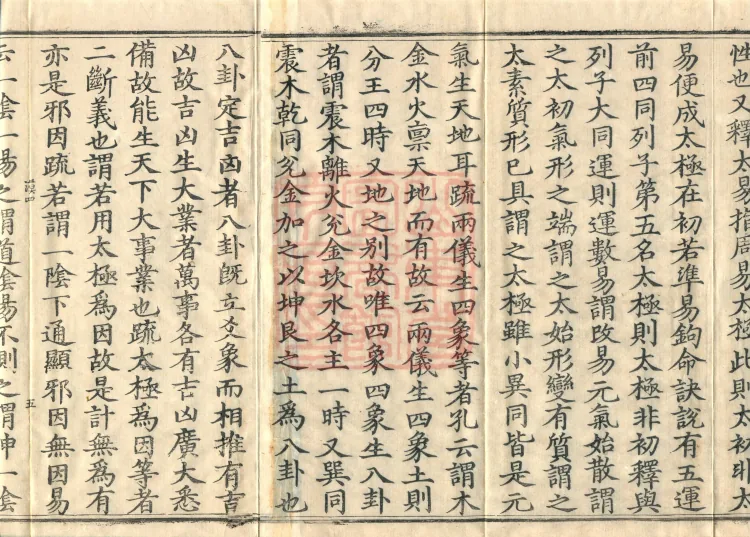 性也又釋太易指周易太極此則太初非太
易便成太極在初若準易鉤命訣說有五運
前四同列子第五名太極則太極非初釋與
列子大同運則運數易謂改易元氣始散謂
之太初氣形之端謂之太始形變有質謂之
太素質形已具謂之太極雖小異同皆是元
氣生天地耳疏兩儀生四象等者孔云謂木
金水火禀天地而有故云兩儀生四象土則
分王四時又地之別故唯四象四象生八卦
者謂震木離火兊金坎水各主一時又巽同
震木乾同兊金加之以坤艮之土為八卦也
八卦定吉凶者八卦旣立爻象而相推有吉
凶故吉凶生大業者萬事各有吉凶廣大悉
備故能生天下大事業也疏太極為因等者
二斷義也謂若用太極爲因故是計無爲有
亦是邪因疏若謂一隂下通顯邪因無因易
云一隂一昜之謂道隂昜不則之謂神一隂
五